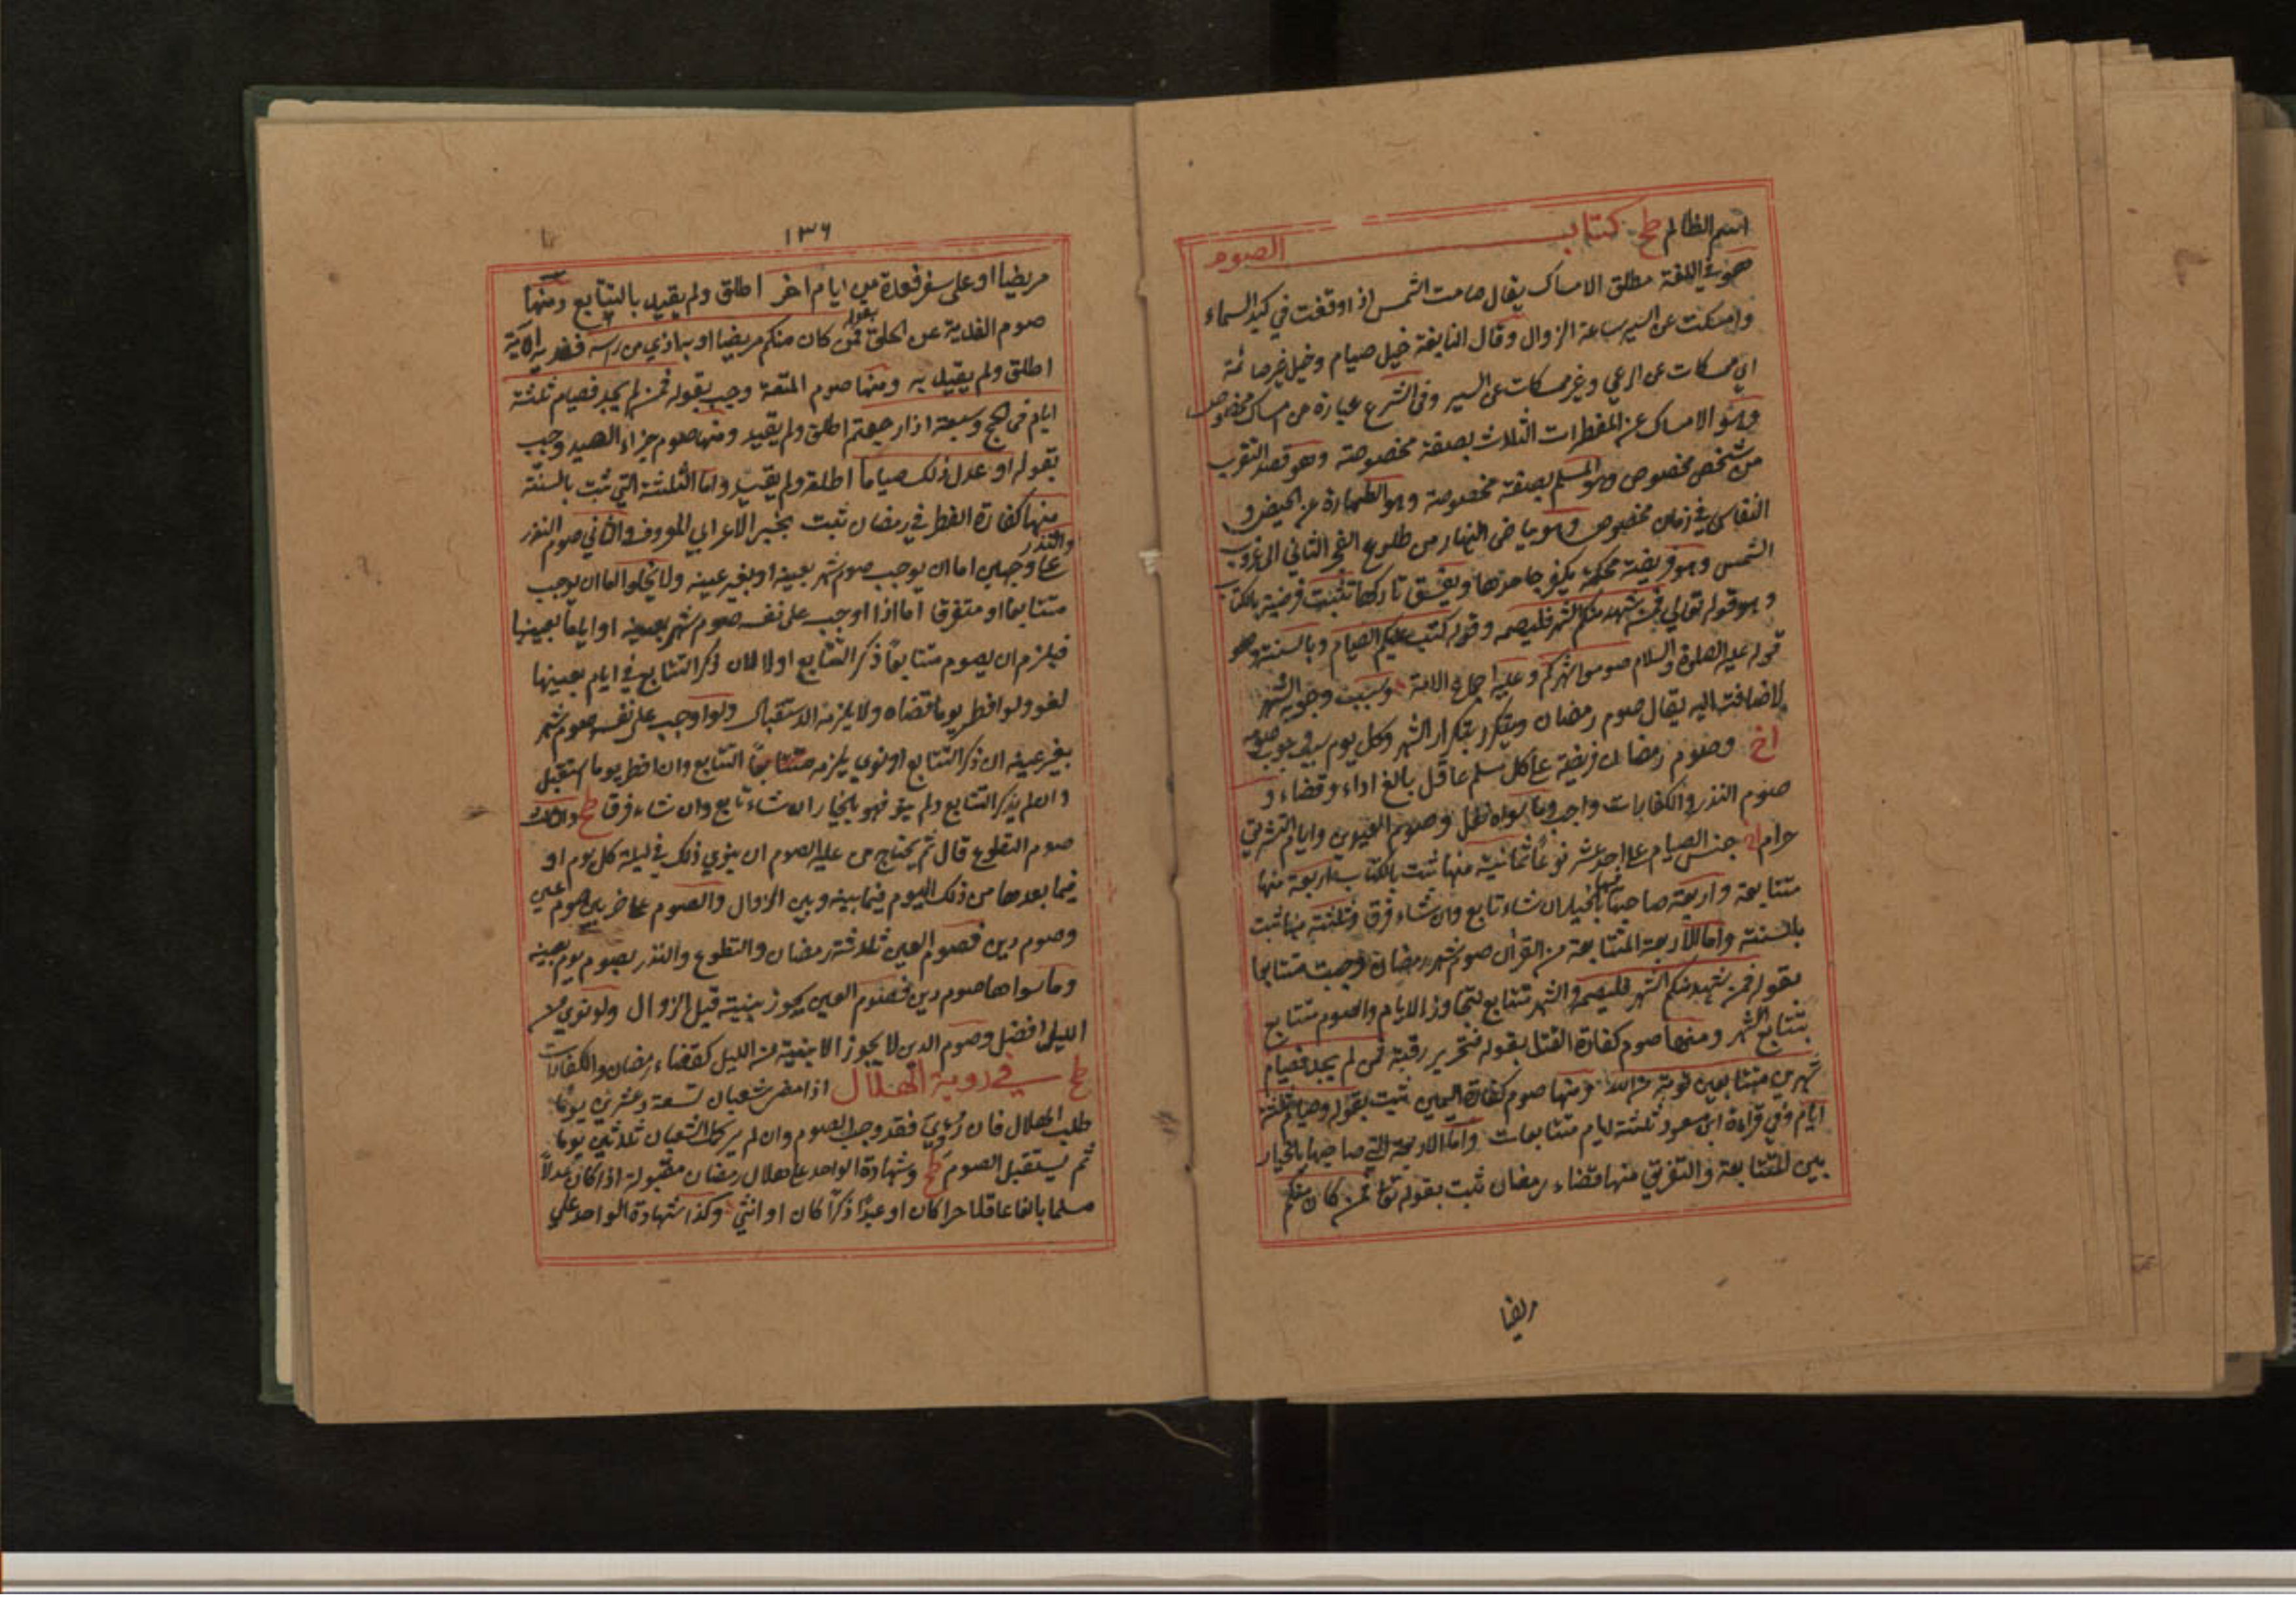 اسم الظالم طح كتاب الصوم
هو في اللغة مطلق الامساك يقال صامت الشمس اذا وقفت في كبد السماء
وامسكت عن السير ساعة الزوال وقال النابغة خيل صيام وخيل غير صائمة
اي ممسكات عن الرعي وغير ممسكات عن السير وفى الشرع عبارة عن امساك مخصوص
وهو الامساك عن المفطرات الثلاث بصفة مخصوصة وهو قصد التقرب
من شخص مخصوص وهو المسلم بصفة مخصوصة وهو الطهارة عن الحيض و
النفاس في زمان مخصوص وهو بياض النهار من طلوع الفجر الثاني الى غروب
الشمس وهو فريضة محكمة يكفر جاحدها ويفسق تاركها تثبت فرضيته بالكتاب
وهو قوله تعالى فمن شهد منكم الشهر فليصمه وقوله كتب عليكم الصيام وبالسنة وهو
قوله عليه الصلوة والسلام صوموا شهركم وعليه اجماع الامة وسبب وجوبه الشهر
لاضافته اليه يقال صوم رمضان ويتكرر بتكرار الشهر وكل يوم سبب وجوب صومه
اخ وصوم رمضان فريضة على كل مسلم عاقل بالغ اداء وقضاء و
صوم النذر والكفارات واجب وما سواه نفل وصوم العيدين وايام التشريق
حرام جنس الصيام على احد عشر نوعا ثمانية منها ثبت بالكتاب اربعة منها
متتابعة واربعة صاحبها فيها بالخيار ان شاء تابع وان شاء فرق وثلثة منها ثبت
بالسنة واما الاربعة المتتابعة من القرآن صوم شهر رمضان وجبت متتابعا
بقوله فمن شهد منكم الشهر فليصمه والشهر متتابع لتجاوز الايام والصوم متتابع
بتتابع الشهر ومنها صوم كفارة القتل بقوله فتحرير رقبة فمن لم يجد فصيام
شهرين متتابعين توبة من الله ومنها صوم كفارة اليمين ثبت بقوله فصيام ثلثة
ايام وفي قراءة ابن مسعود ثلثة ايام متتابعات واما الاربعة التي صاحبها بالخيار
بين المتتابعة والتفريق منها قضاء رمضان ثبت بقوله تعا فمن كان منكم
مريضا
١٣٦
مريضا او على سفر فعدة من ايام اخر اطلق ولم يقيد بالتتابع ومنها
صوم الفدية عن الحلق بقوله فمن كان منكم مريضا او به اذي من رأسه ففدية الآية
اطلق ولم يقيد به ومنها صوم المتعة وجب بقوله فمن لم يجد فصيام ثلثة
ايام فى الحج وسبعة اذا رجعتم اطلق ولم يقيد ومنها صوم جزاء الصيد وجب
بقوله او عدل ذلك صياما اطلقه ولم يقيد واما الثلثة التي ثبت بالسنة
منها كفارة الفطر في رمضان ثبت بخبر الاعرابي المعروف والثاني صوم النذر والنذر
على وجهين اما ان يوجب صوم شهر بعينه او بغير عينه ولا يخلو اما ان يوجب
متتابعا او متفرقا اما اذا اوجب على نفسه صوم شهر بعينه او اياما بعينها
فيلزم ان يصوم متتابعا ذكر التتابع او لا لان ذكر التتابع في ايام بعينها
لغو ولو افطر يوما قضاه ولا يلزمه الاستقبال ولو اوجب على نفسه صوم شهر
بغير عينه ان ذكر التتابع او نوي يلزمه متتابعاً التتابع وان افطر يوما استقبل
وان لم يذكر التتابع ولم ينو فهو بالخيار ان شاء تابع وان شاء فرق طح والثالث
صوم التطوع قال ثم يحتاج من عليه الصوم ان ينوي ذلك في ليلة كل يوم او
فيما بعدها من ذلك اليوم فيما بينه وبين الزوال والصوم على ضربين صوم عين
وصوم دين فصوم العين ثلاثة رمضان والتطوع والنذر بصوم يوم بعينه
وما سواها صوم دين فصوم العين يجوز بنيته قبل الزوال ولو نوي من
الليل افضل وصوم الدين لا يجوز الا بنية من الليل كقضاء رمضان والكفارات
طح في روية الهلال اذا مضى شعبان تسعة وعشرين يوما
طلب الهلال فان رُؤيَ فقد وجب الصوم وان لم ير كمل شعبان ثلاثين يوما
ثم يستقبل الصوم طح وشهادة الواحد على هلال رمضان مقبولة اذا كان عدلاً
مسلما بالغا عاقلا حرا كان او عبدًا ذكرًا كان او انثى وكذا شهادة الواحد على